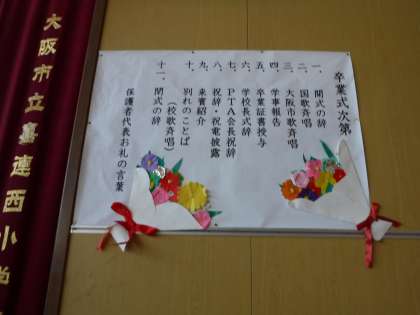 卒業式次第
一、開式の辞
二、国歌斉唱
三、大阪市歌斉唱
四、学事報告
五、卒業証書授与
六、学校長式辞
七、PTA会長祝辞
八、祝辞・祝電披露
九、来賓紹介
十、別れのことば
(校歌斉唱)
十一、閉式の辞
保護者代表お礼の言葉
大阪市立喜連西小学